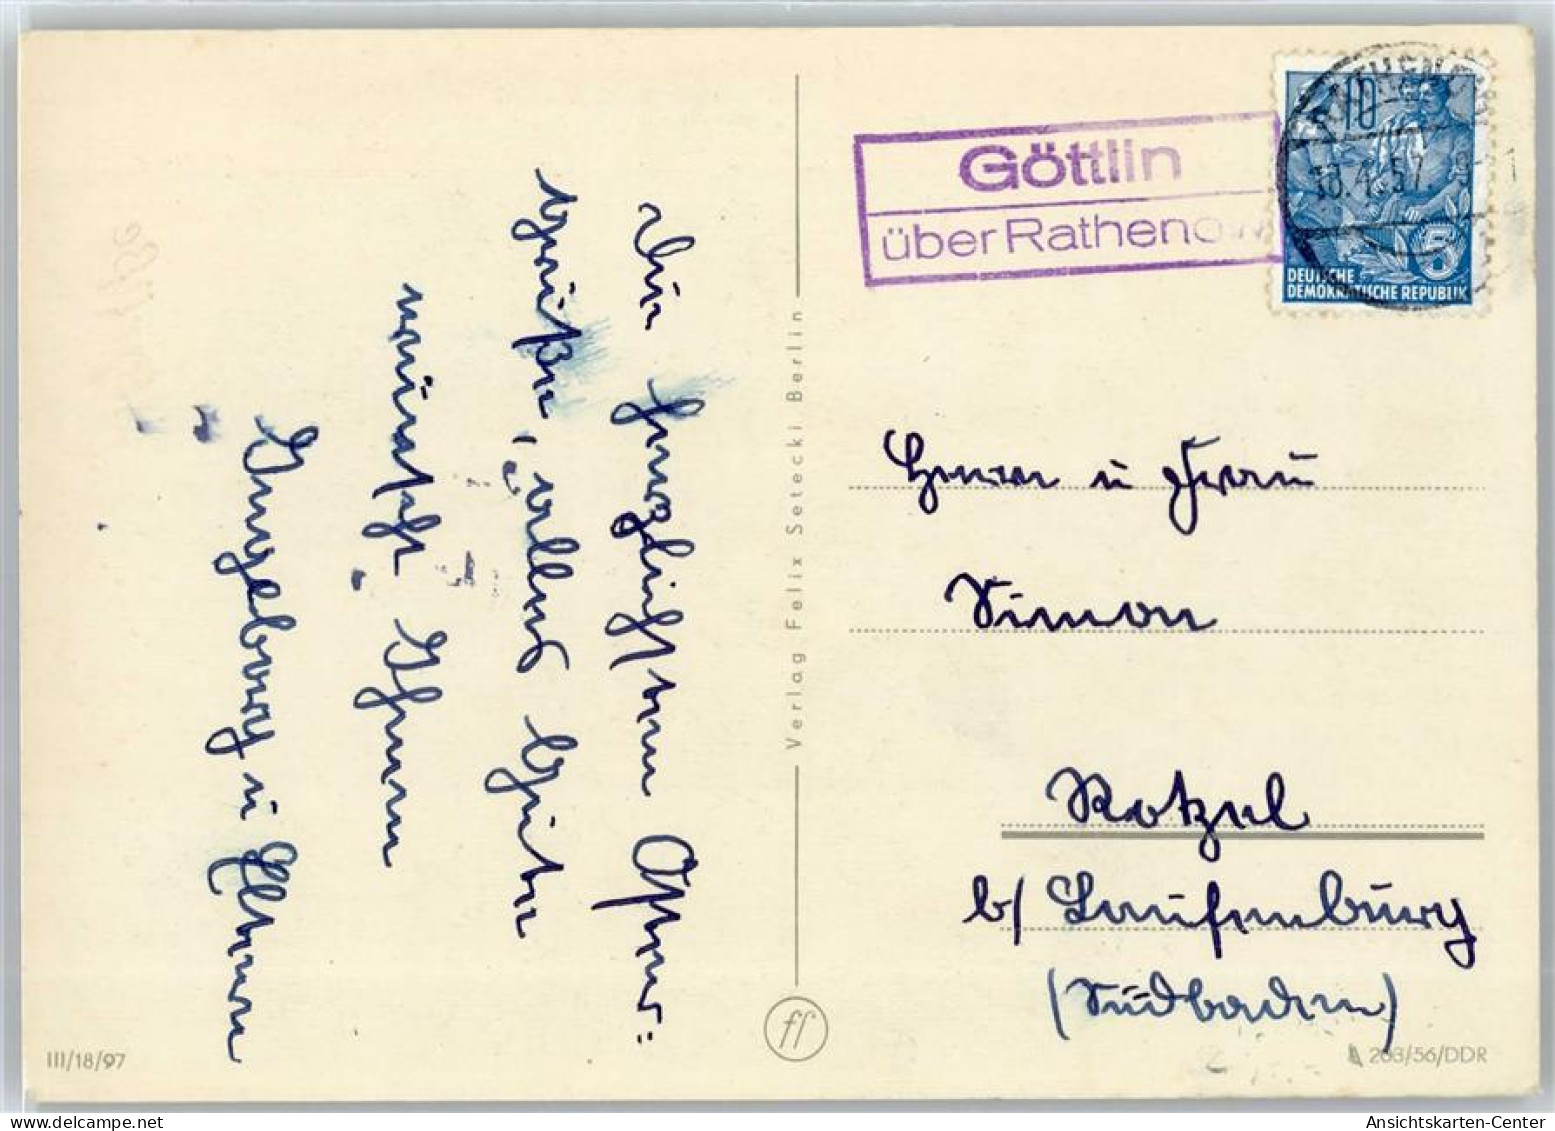 Die herzlichsten Oster=
grüße, alles Gute
wünscht Ihnen
Ingeborg u Eltern
Verlag Felix Setecki, Berlin
ff
III/18/97
Göttlin
über Rathenow
RATHENOW
18.4.57
10
5
DEUTSCHE
DEMOKRATISCHE REPUBLIK
Herrn u Frau
Simon
Rotzel
b/ Laufenburg
(Südbaden)
A 263/56/DDR
Ansichtskarten-Center